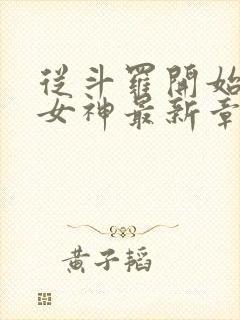 從斗羅開始
女神最新章
黃子韜